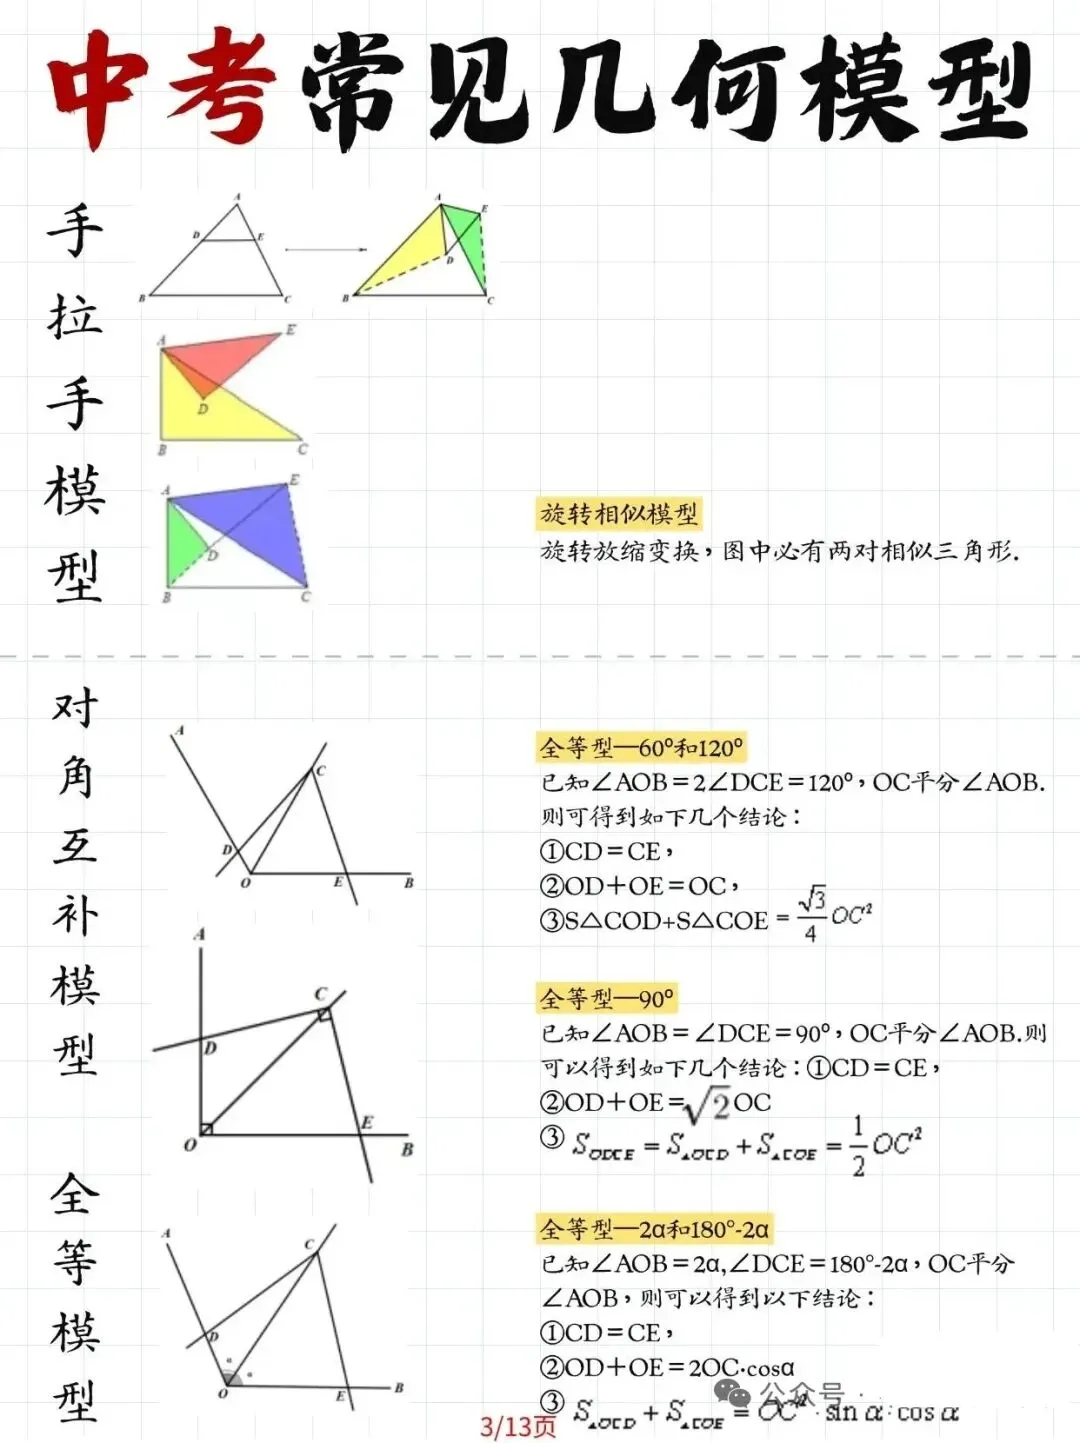 中考常见几何模型
手拉手模型
A
D E
B C
A E
D
B C
A E
D
B C
A E
D
B C
旋转相似模型
旋转放缩变换，图中必有两对相似三角形.
对角互补模型
全等模型
A
C
D
O E B
全等型—60º和120º
已知∠AOB＝2∠DCE＝120º，OC平分∠AOB.
则可得到如下几个结论：
①CD＝CE，
②OD＋OE＝OC，
③S△COD+S△COE = √3/4 OC²
A
C
D
O E B
全等型—90º
已知∠AOB＝∠DCE＝90º，OC平分∠AOB.则
可以得到如下几个结论：①CD＝CE，
②OD＋OE＝√2OC
③ S_ODCE = S_△OCD + S_△COE = 1/2 OC²
A
C
D
O E B
全等型—2α和180°-2α
已知∠AOB＝2α,∠DCE＝180°-2α，OC平分
∠AOB，则可以得到以下结论：
①CD＝CE，
②OD＋OE＝2OC·cosα
③ S_△OCD + S_△COE = OC²·sinα·cosα
公众号·
3/13页